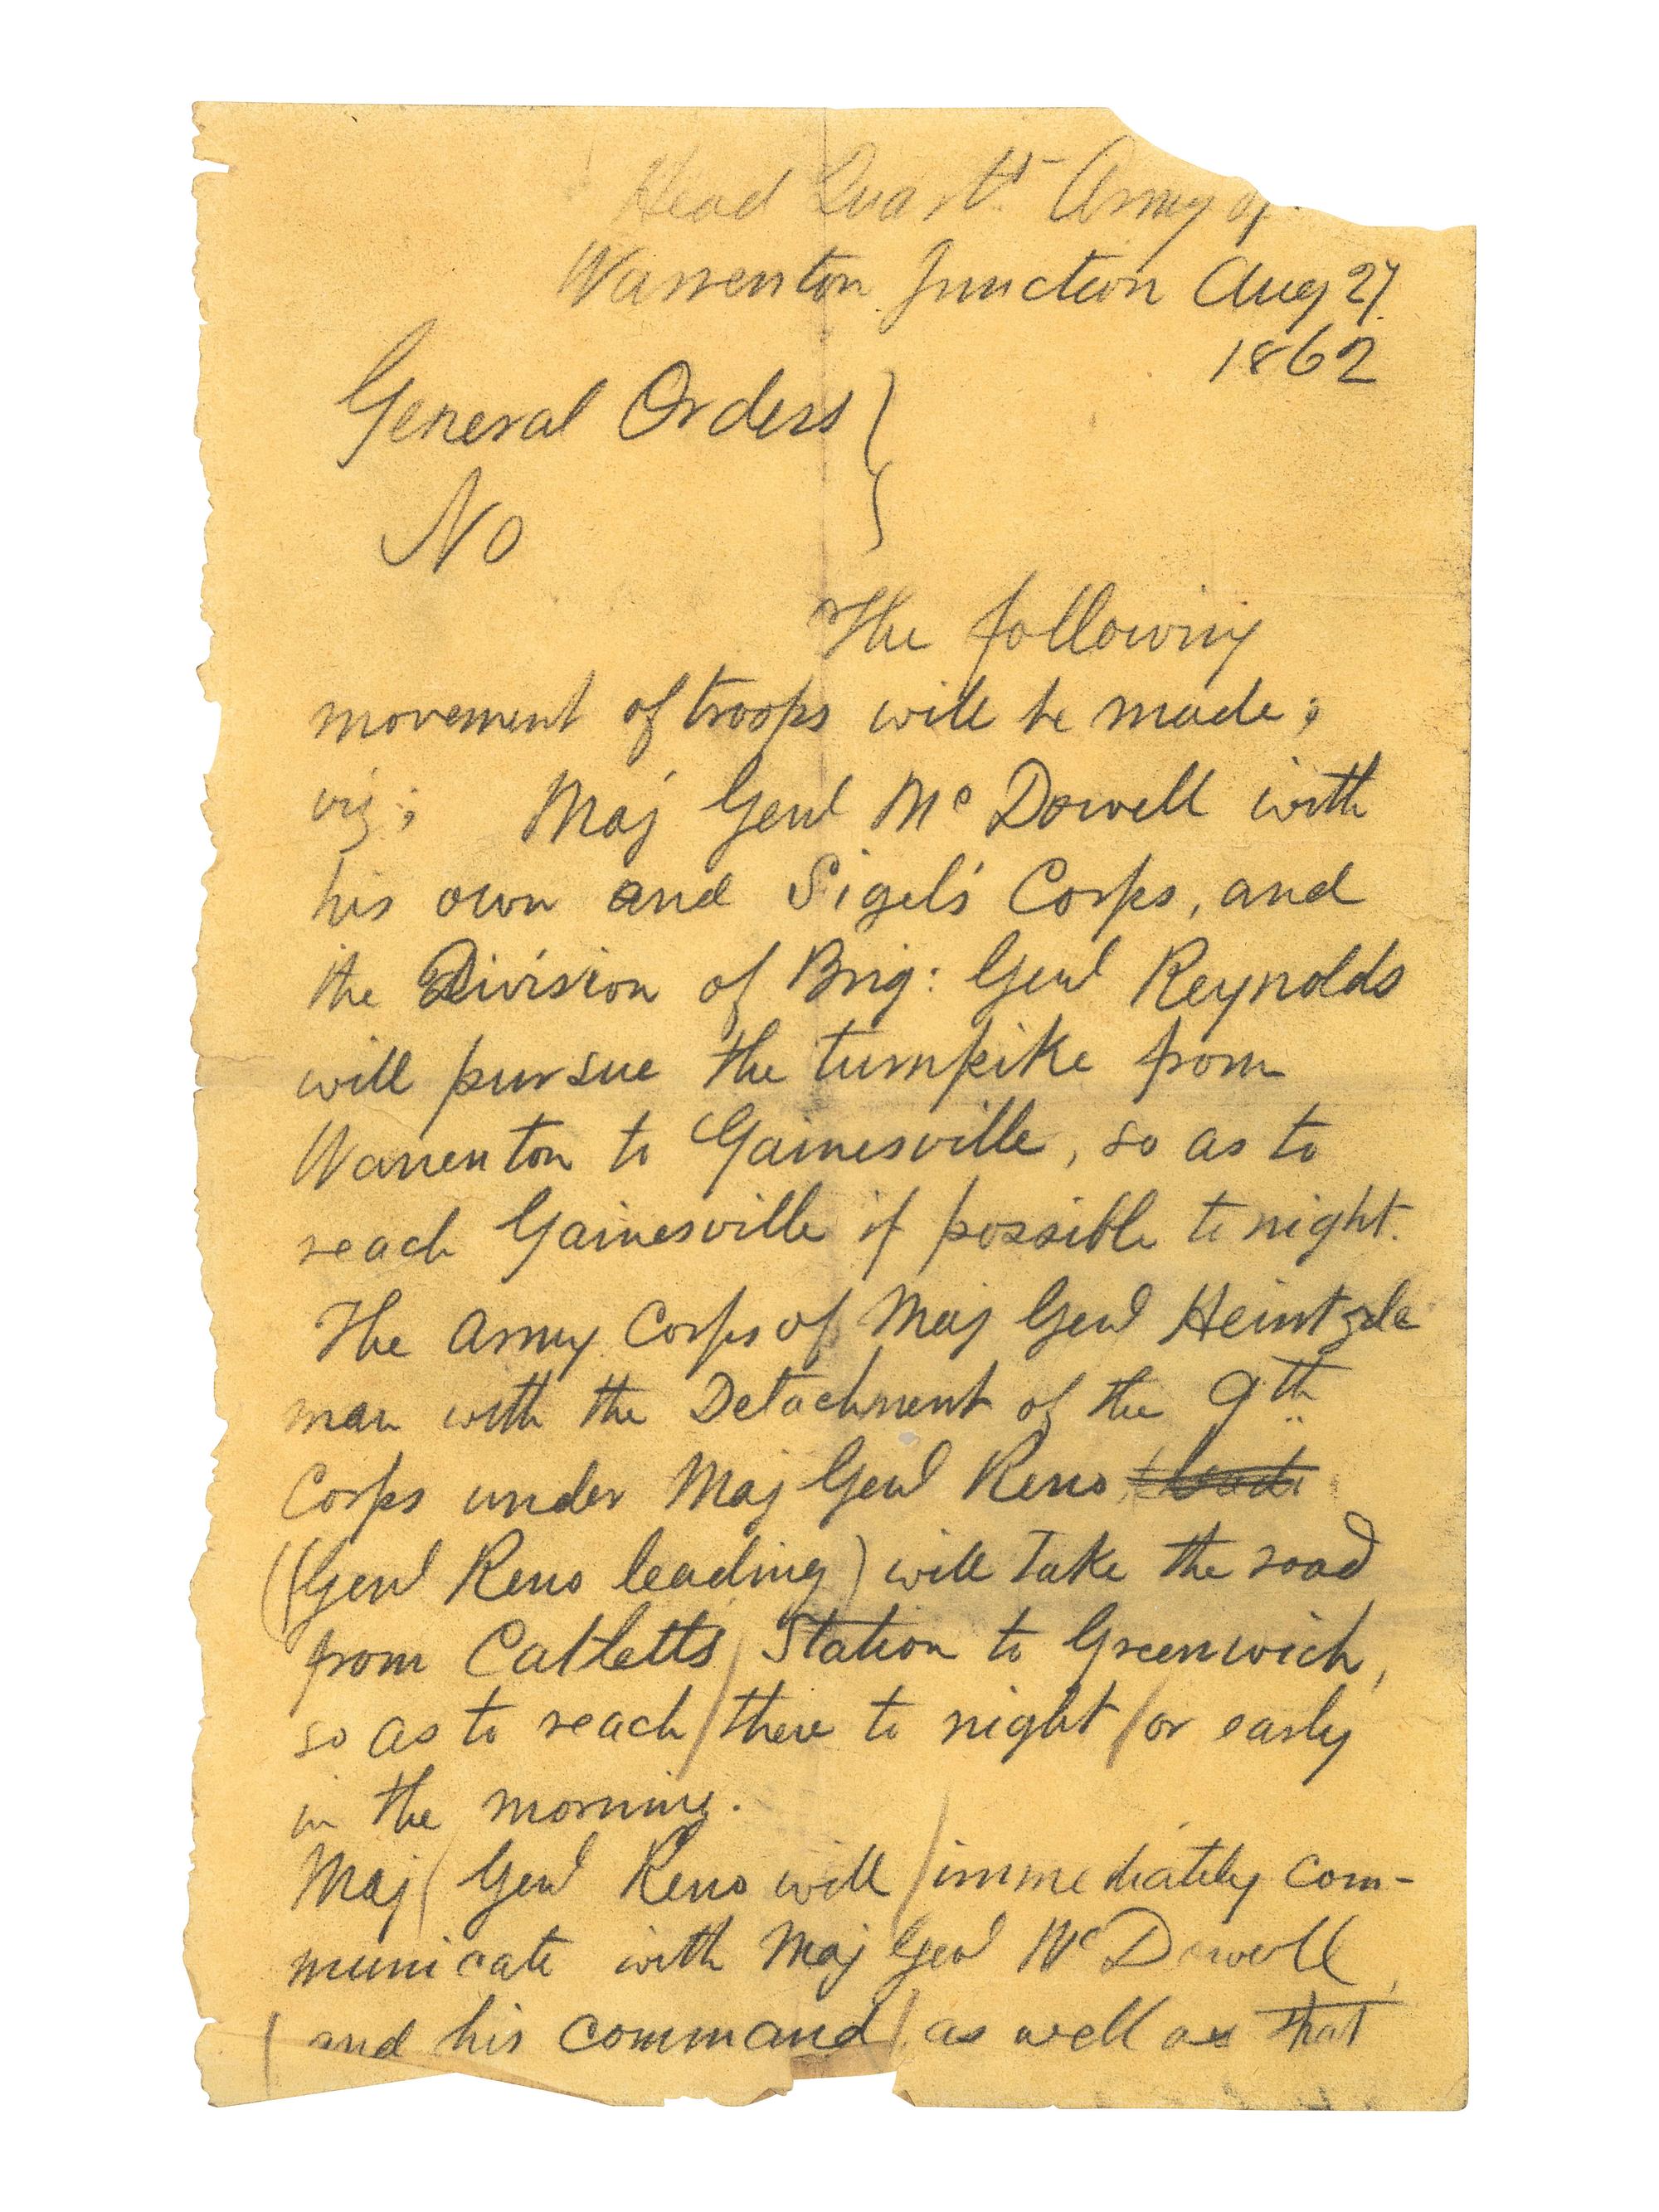 Head Quarts Army of
Warrenton Junction Aug 27
1862
General Orders }
No
The following
movement of troops will be made;
viz; Maj Genl Mc Dowell with
his own and Sigel's Corps, and
the Division of Brig: Genl Reynolds
will pursue the turnpike from
Warrenton to Gainesville, so as to
reach Gainesville if possible to night.
The Army Corps of Maj Genl Heintzle
man with the Detachment of the 9th
Corps under Maj Genl Reno
(Genl Reno leading) will take the road
from Catletts Station to Greenwich,
so as to reach there to night or early
in the morning.
Maj Genl Reno will immediately com-
municate with Maj Genl McDowell,
and his command as well as that